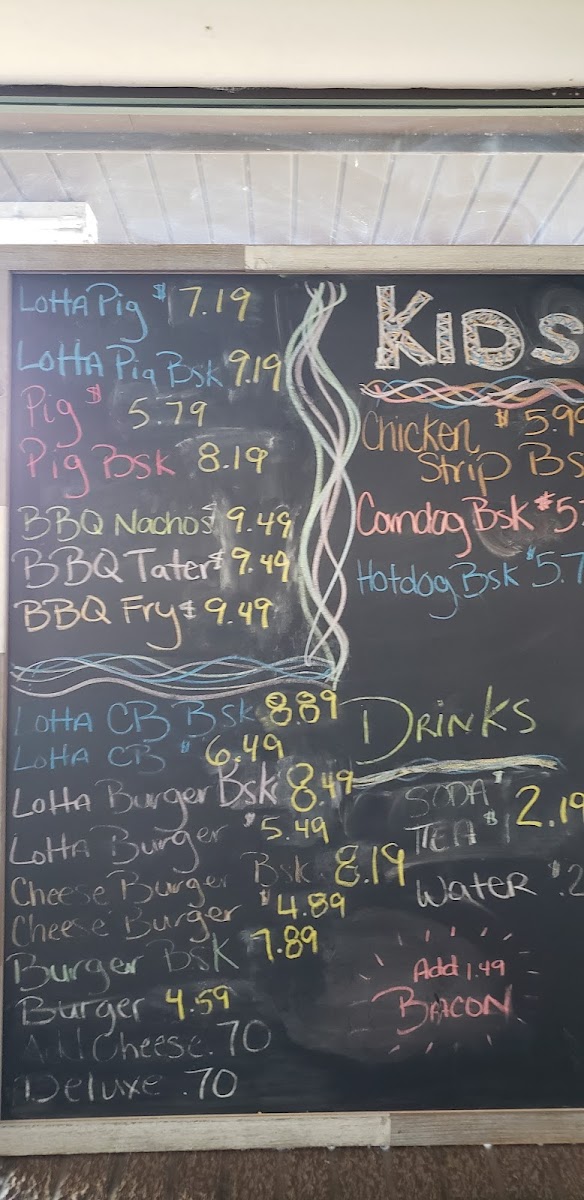 Lotta Pig $ 7.19
Lotta Pig Bsk 9.19
Pig $ 5.79
Pig Bsk 8.19
BBQ Nachos $ 9.49
BBQ Tater $ 9.49
BBQ Fry $ 9.49
Lotta CB Bsk 8.89
Lotta CB $ 6.49
Lotta Burger Bsk 8.49
Lotta Burger $ 5.49
Cheese Burger Bsk 8.19
Cheese Burger $ 4.89
Burger Bsk 7.89
Burger 4.59
Add Cheese .70
Deluxe .70
KIDS
Chicken $ 5.99
Strip Bs
Corndog Bsk $ 5.
Hotdog Bsk $ 5.7
DRINKS
SODA $
TEA $ 2.19
Water $ 2
Add 1.49
BACON